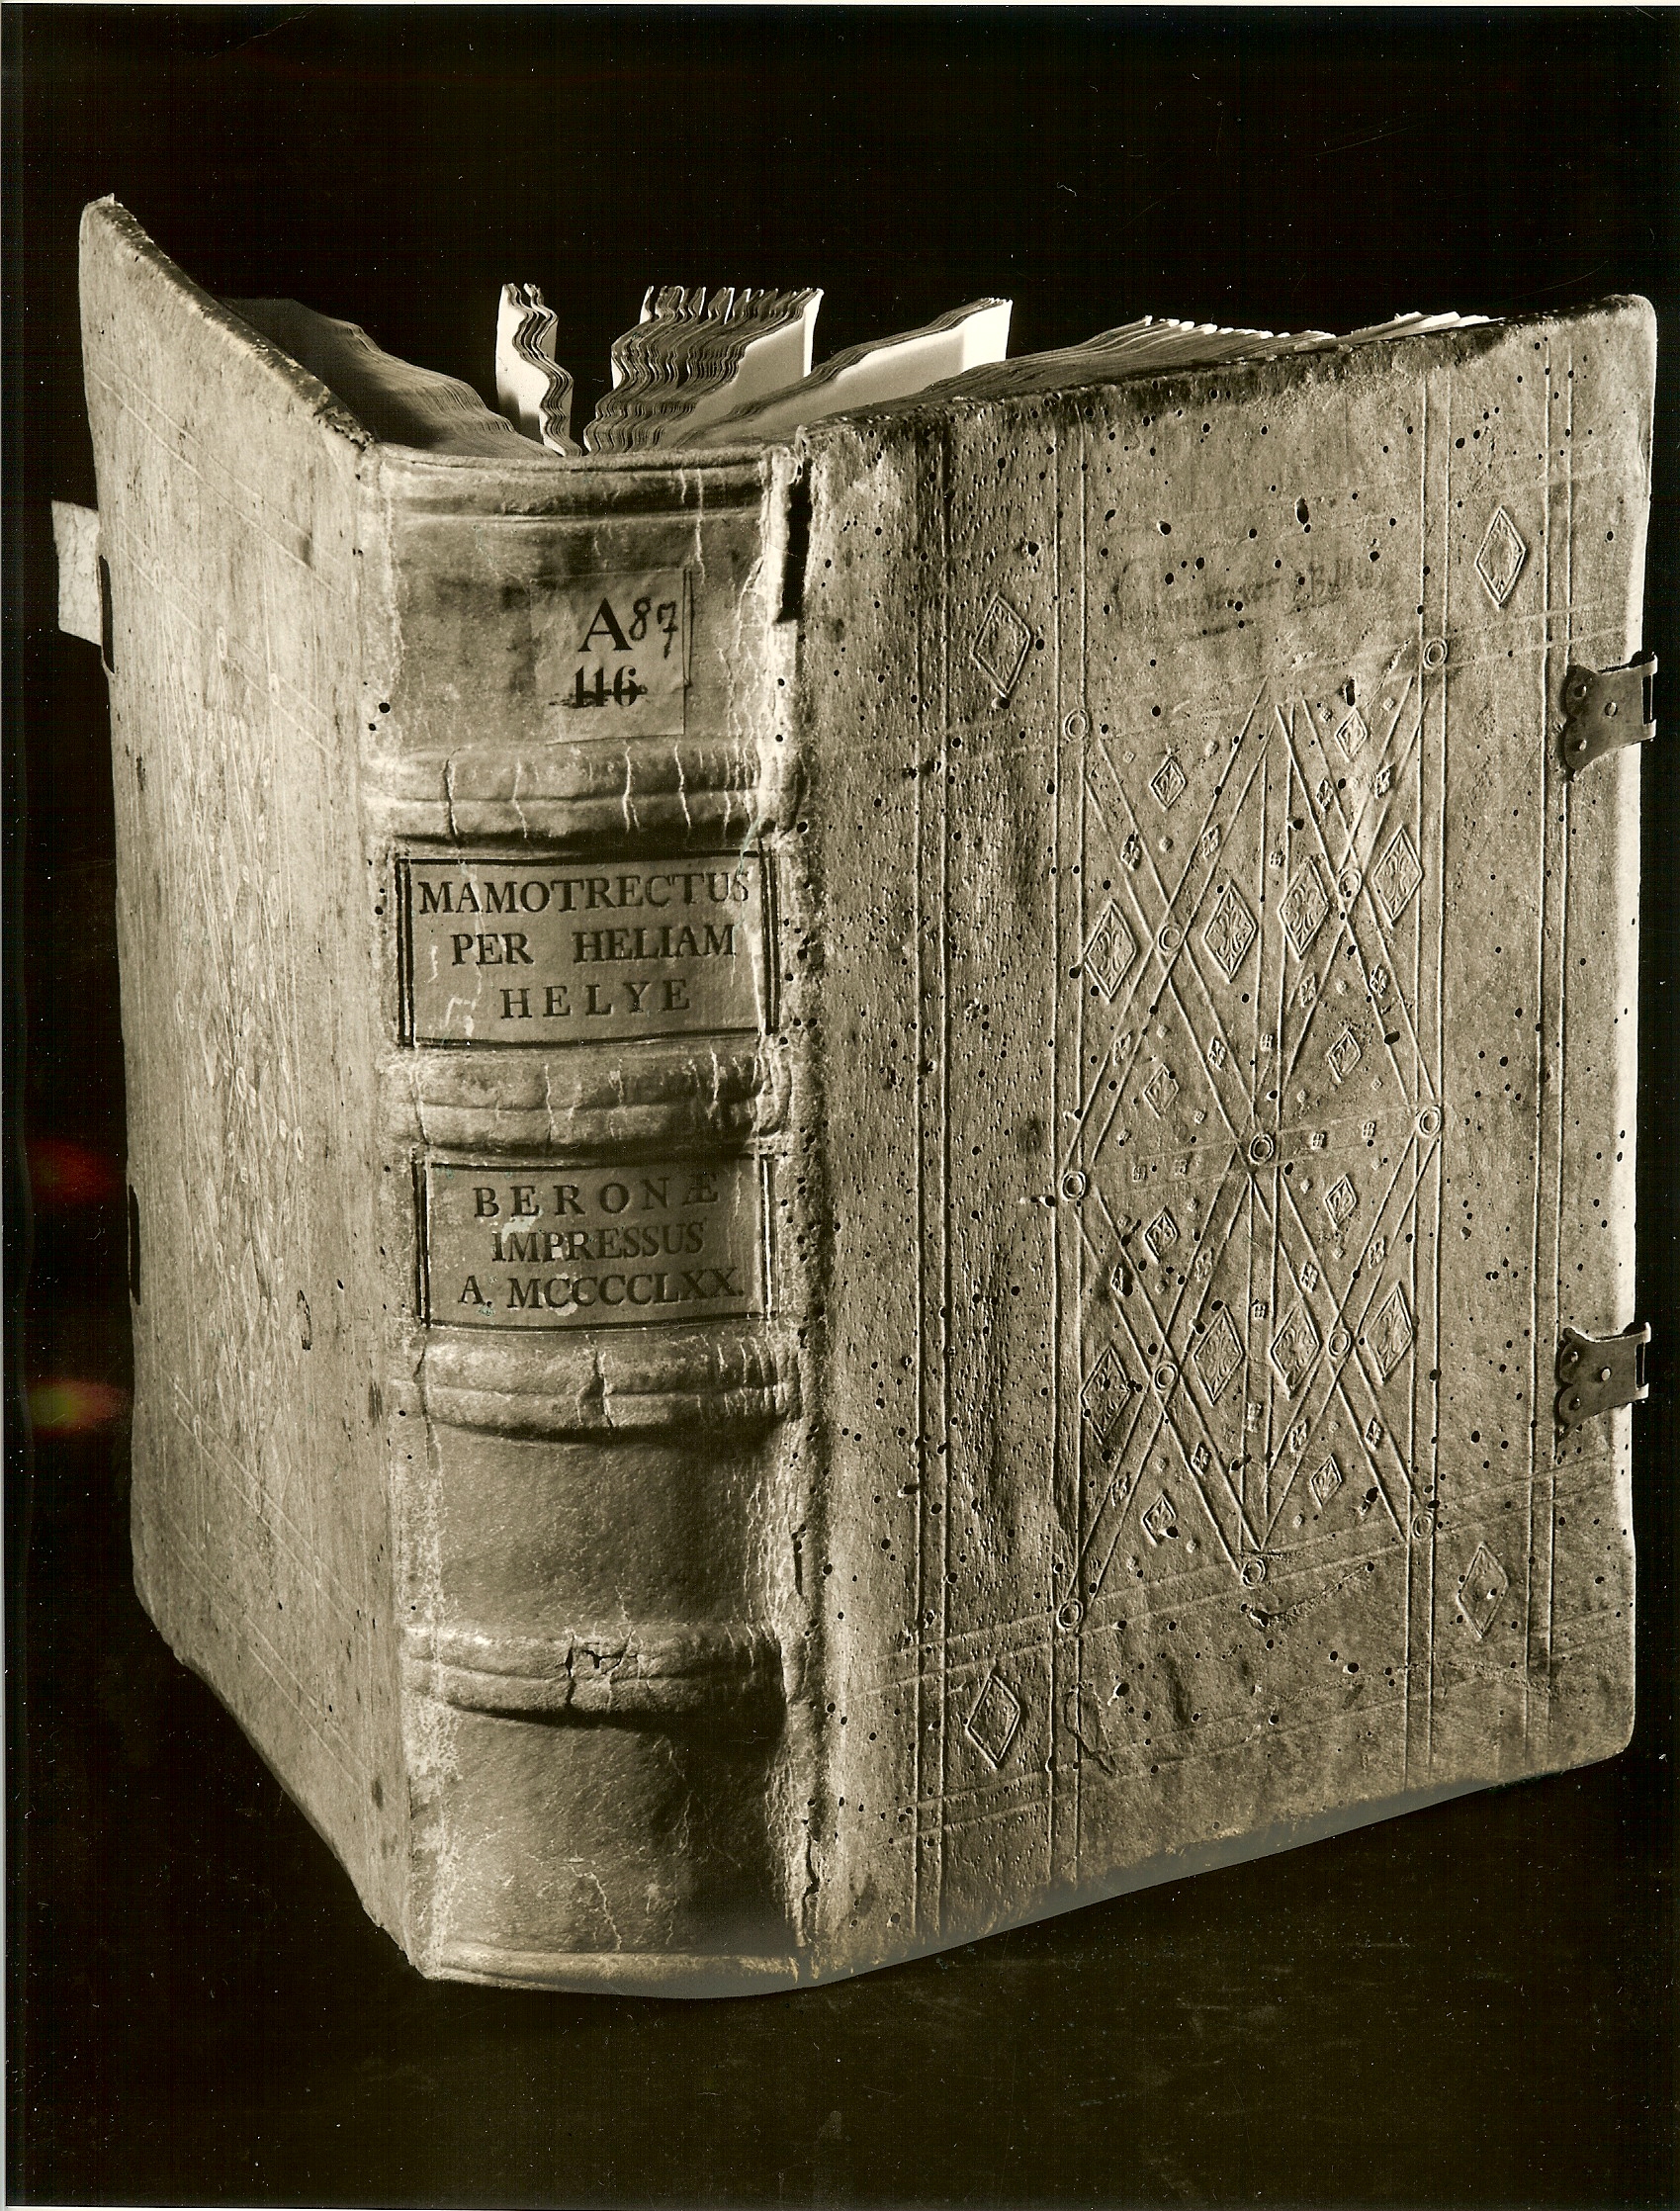 A 87
116
MAMOTRECTUS
PER HELIAM
HELYE
BERONÆ
IMPRESSUS
A. MCCCCLXX.